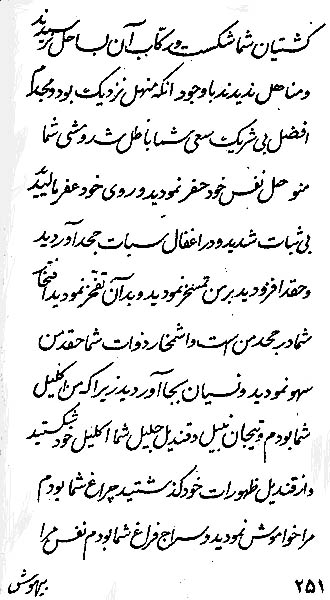 کشتیان شما شکست و رکاب آن بساحل نرسیدند
و مناهل ندیدند با وجود آنکه منهل نزدیک بود و مجد که
افضل بی شریک سعی شما باطل شد و مشی شما
منوحل نفس خود حفر نمودید و روی خود عفر مالیدید
بی ثبات شدید و در اغفال سبات جحد آوردید
و حقد افزودید بر من تمسخر نمودید و بدآن تفخر نمودید افتخار
شما در جحد من است و اشمخار ذوات شما حقد من
سهو نمودید و نسیان بجا آوردید زیرا که من اکلیل
شما بودم و تیجان نبیل و قندیل جلیل شما اکلیل خود شکستید
و از قندیل ظهورات خود گذشتید چراغ شما بودم
مرا خواموش نمودید و سراج فراغ شما بودم نفس مرا
۲۵۱
بیهوش